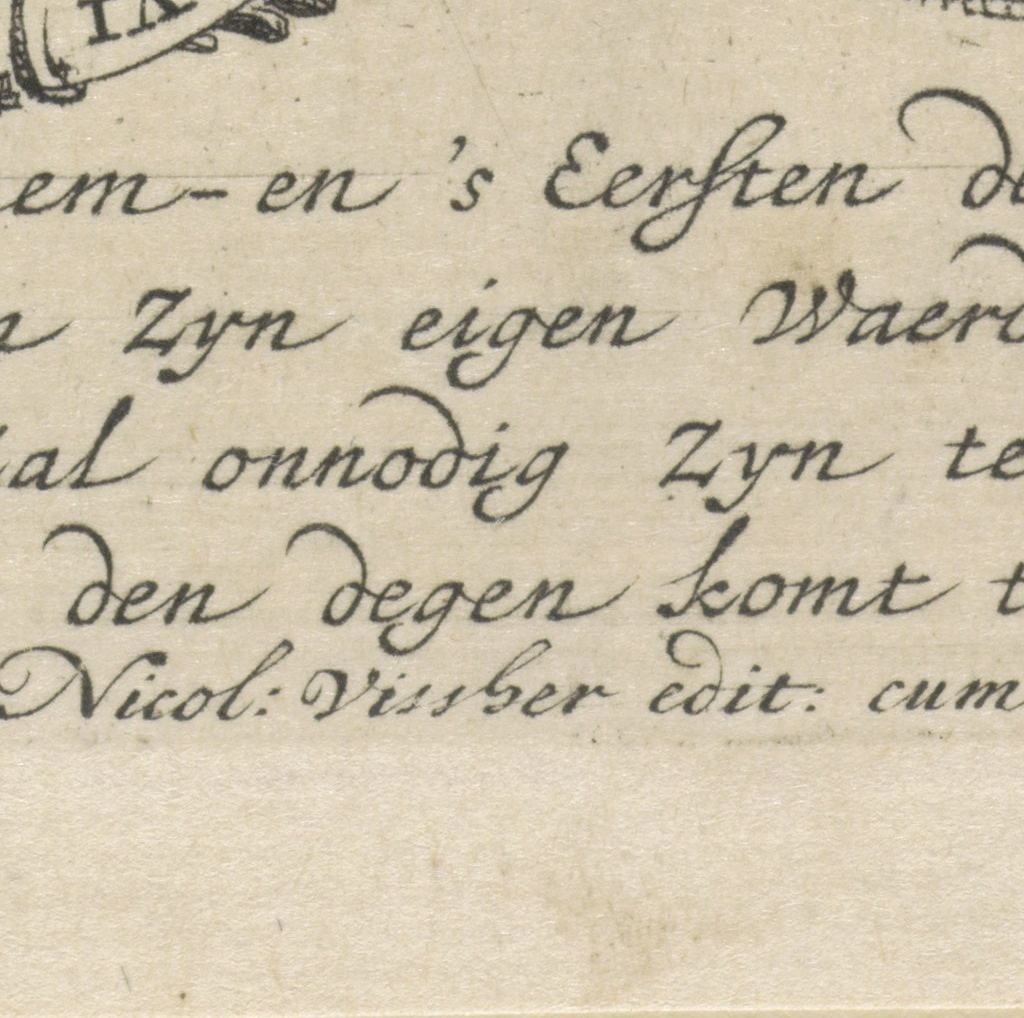 IX VI
em-en 's Eersten de
n Zyn eigen Waerd
al onnodig Zyn te
den degen komt t
Nicol: Vissher edit: cum